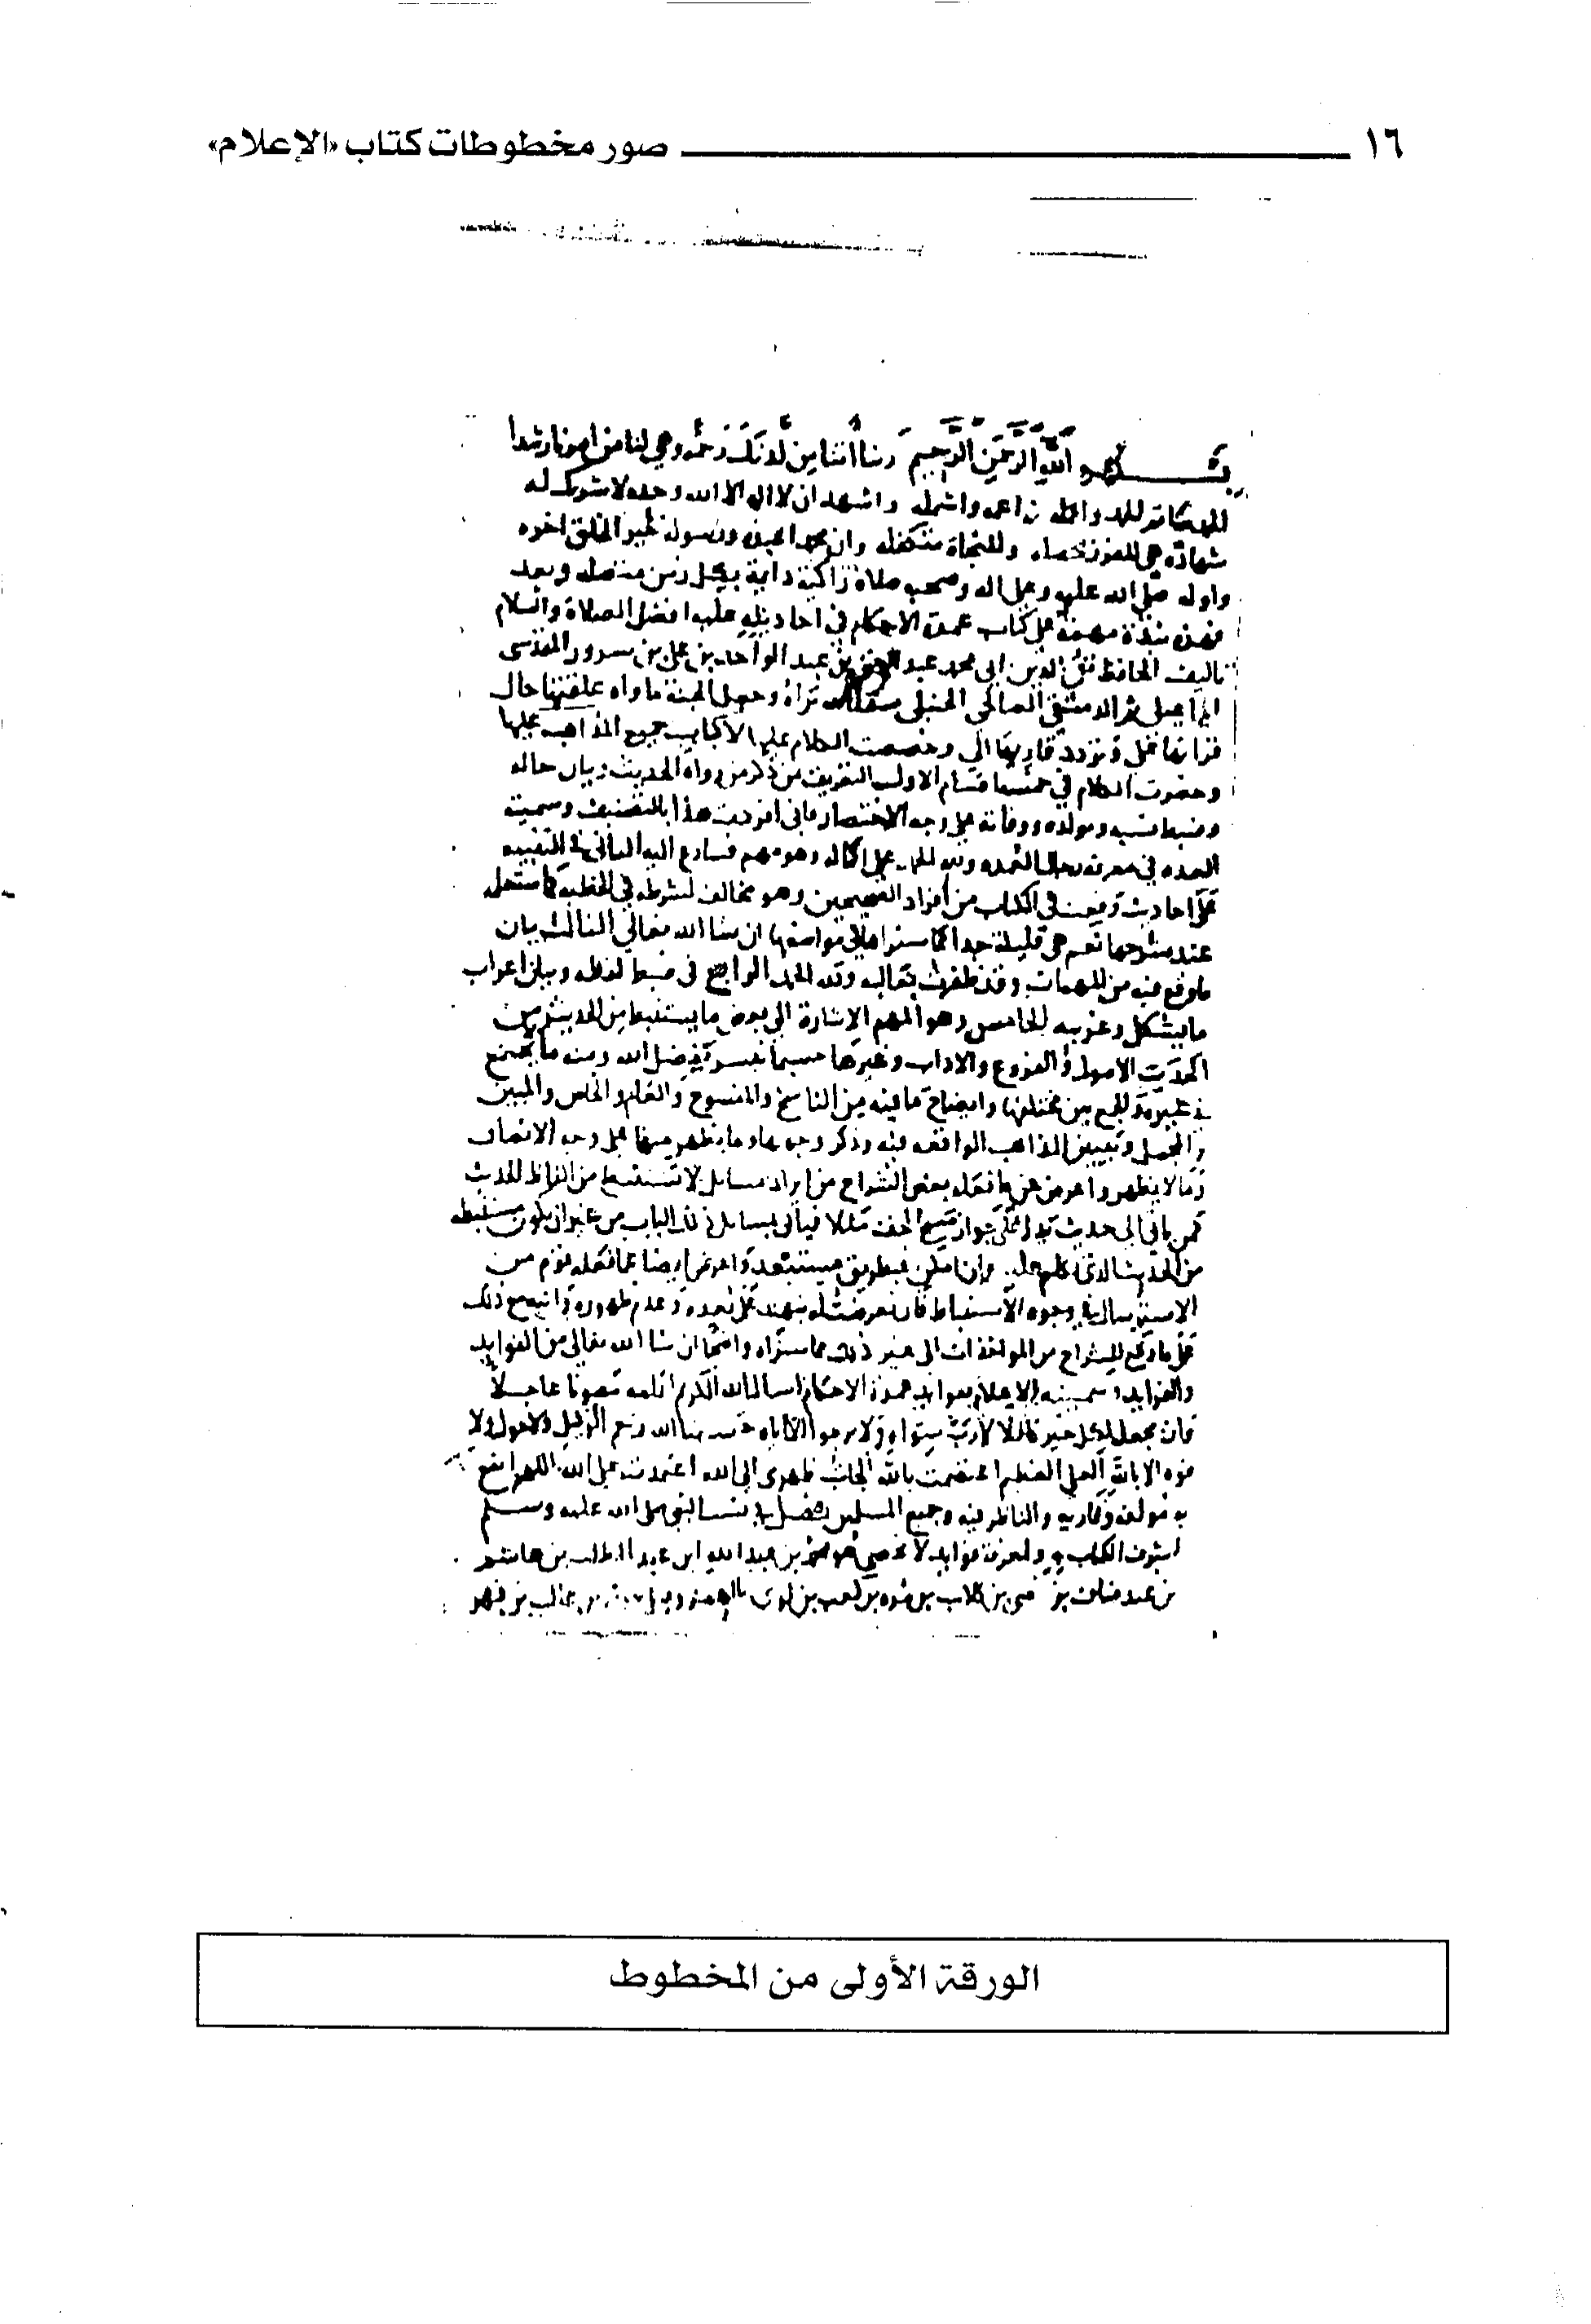 ١٦ صور مخطوطات كتاب «الإعلام»
بسم الله الرحمن الرحيم ربنا اتنا من لدنك رحمة وهي لنا من امرنا رشدا
واشهد ان لا اله الا الله وحده لا شريك له
شهادة هي للفوز وللنجاة متكفله وان محمدا عبده ورسوله خير الخلق اخره
واوله صلى الله عليه وعلى اله وصحبه صلاة زاكية دايمة بكل زمن متصله وبعد
فهذه نبذة مهمة على كتاب عمدة الاحكام في احاديثه عليه افضل الصلاة والسلام
تاليف الحافظ تقي الدين ابي محمد عبد الغني بن عبد الواحد بن علي بن سرور المقدسي
ثم الدمشقي الصالحي الحنبلي سقى الله ثراه وجعل الجنة ماواه علقتها حال
قراتها علي وتردد قاريها الي جميع
وحصرت الكلام في خمسة اقسام الاول التعريف من ذكر من رواة الحديث وبيان حاله
وضبط نسبه ومولده ووفاته على وجه الاختصار فاني افردت هذا بالتصنيف وسميته
العدة في معرفة رجال العمدة ولله الحمد على اكماله وهو مهم فسارع اليه الثاني في التنبيه
على احاديث وقعت في الكتاب من افراد الصحيحين وهو مخالف لشرطه في الخطبة
عند شرحها نعم هي قليلة جدا كما ستراها في مواضعها ان شا الله تعالى الثالث بيان
ما وقع فيه من المبهمات وقد ظفرت ولله الحمد الرابع في ضبط لفظه وبيان اعراب
ما يشكل وغريبه الخامس وهو المهم الاشارة الى بعض ما يستنبط من الحديث من
الاصول والفروع والاداب وغيرها حسبما فضل الله ومنه
والجمع بين مختلفها وايضاح ما فيه من الناسخ والمنسوخ والعام والخاص والمبين
والمجمل وتبيين المذاهب الواقعه فيه وذكر وجهها وما يظهر منها على وجه الانصاف
وما لا يظهر واعرض عن ما فعله بعض الشراح من ايراد مسايل لا تستنبط من الفاظ الحديث
كمن ياتي الى حديث يدل على جواز مسح الخف مثلا فياتي بمسايل ذلك الباب من غير ان يكون مستنبطه
من الحديث الذي يتكلم عليه وان امكن فبطريق مستبعد واعرض ايضا عما فعله قوم من
وجوه الاستنباط فان تعرضت له نبهت على بعده وعدم ظهوره واتبع ذلك
على ما وقع للشراح من المواخذات الى غير ذلك مما ستراه واضحا ان شا الله تعالى من الفوايد
والفرايد وسميته الاعلام بفوايد عمدة الاحكام اسال الله الكريم اتمامه مصونا عاجلا
وان يجعله لكل خير كافلا لا رب سواه ولا نرجو الا اياه حسبنا الله ونعم الوكيل ولا حول ولا
قوه الا بالله العلي العظيم اعتصمت بالله الجات ظهري الى الله اعتمدت على الله اللهم انفع
به مولفه وقاريه والناظر فيه وجميع المسلمين صلى الله عليه وسلم
الكتاب فوايد لا تحصى هو محمد بن عبد الله ابن عبد المطلب بن هاشم
بن عبد مناف بن قصي بن كلاب بن مره بن كعب بن لوي بن غالب بن فهر
الورقة الأولى من المخطوط